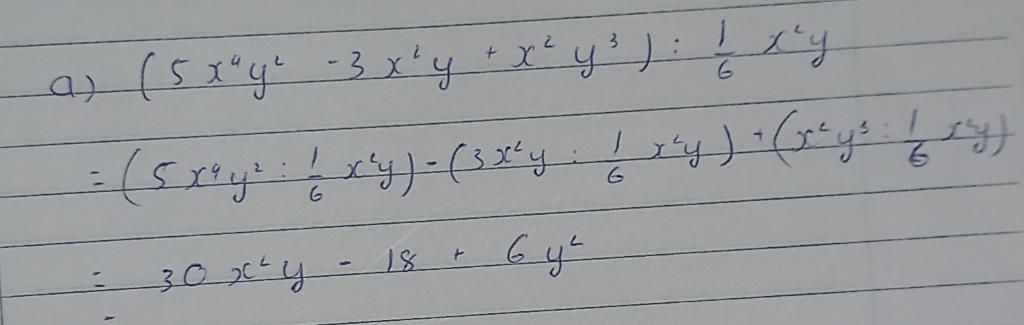 a) (5x⁴y² - 3x²y + x²y³) : 1/6 x²y
= (5x⁴y² : 1/6 x²y) - (3x²y : 1/6 x²y) + (x²y³ : 1/6 x²y)
= 30x²y - 18 + 6y²
=